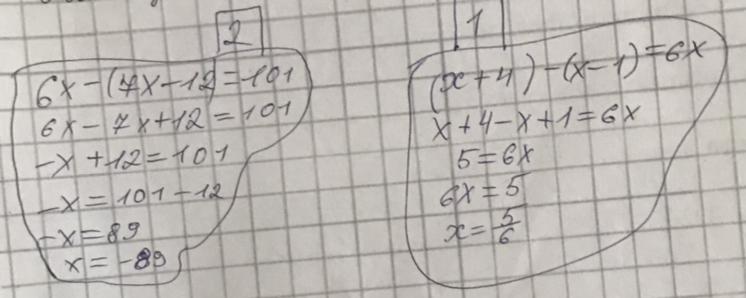 2
6x-(7x-12)=101
6x-7x+12=101
-x+12=101
-x=101-12
-x=89
x=-89
1
(x+4)-(x-1)=6x
x+4-x+1=6x
5=6x
6x=5
x=5/6